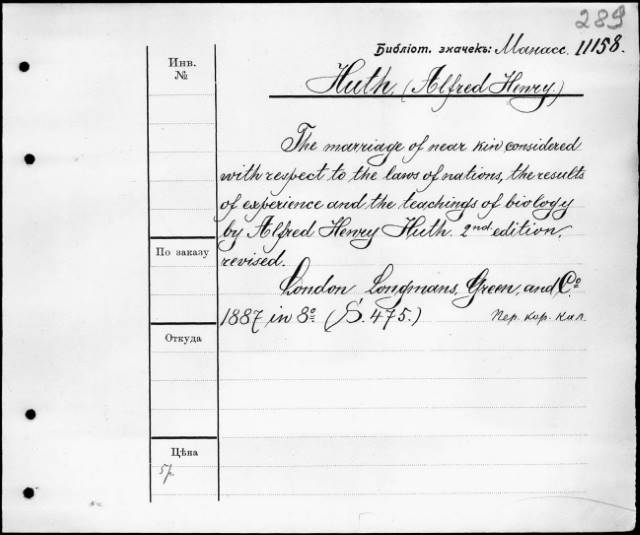 289
Библіот. значекъ: Манасс. 11158.
Инв.
№
Huth. (Alfred Henry.)
The marriage of near kin considered
with respect to the laws of nations, the results
of experience and the teachings of biology
by Alfred Henry Huth. 2nd. edition,
revised.
По заказу
London Longmans, Green, and Co.
1887 in 8o (S. 475.) Пер. кор. кал.
Откуда
Цѣна
5р